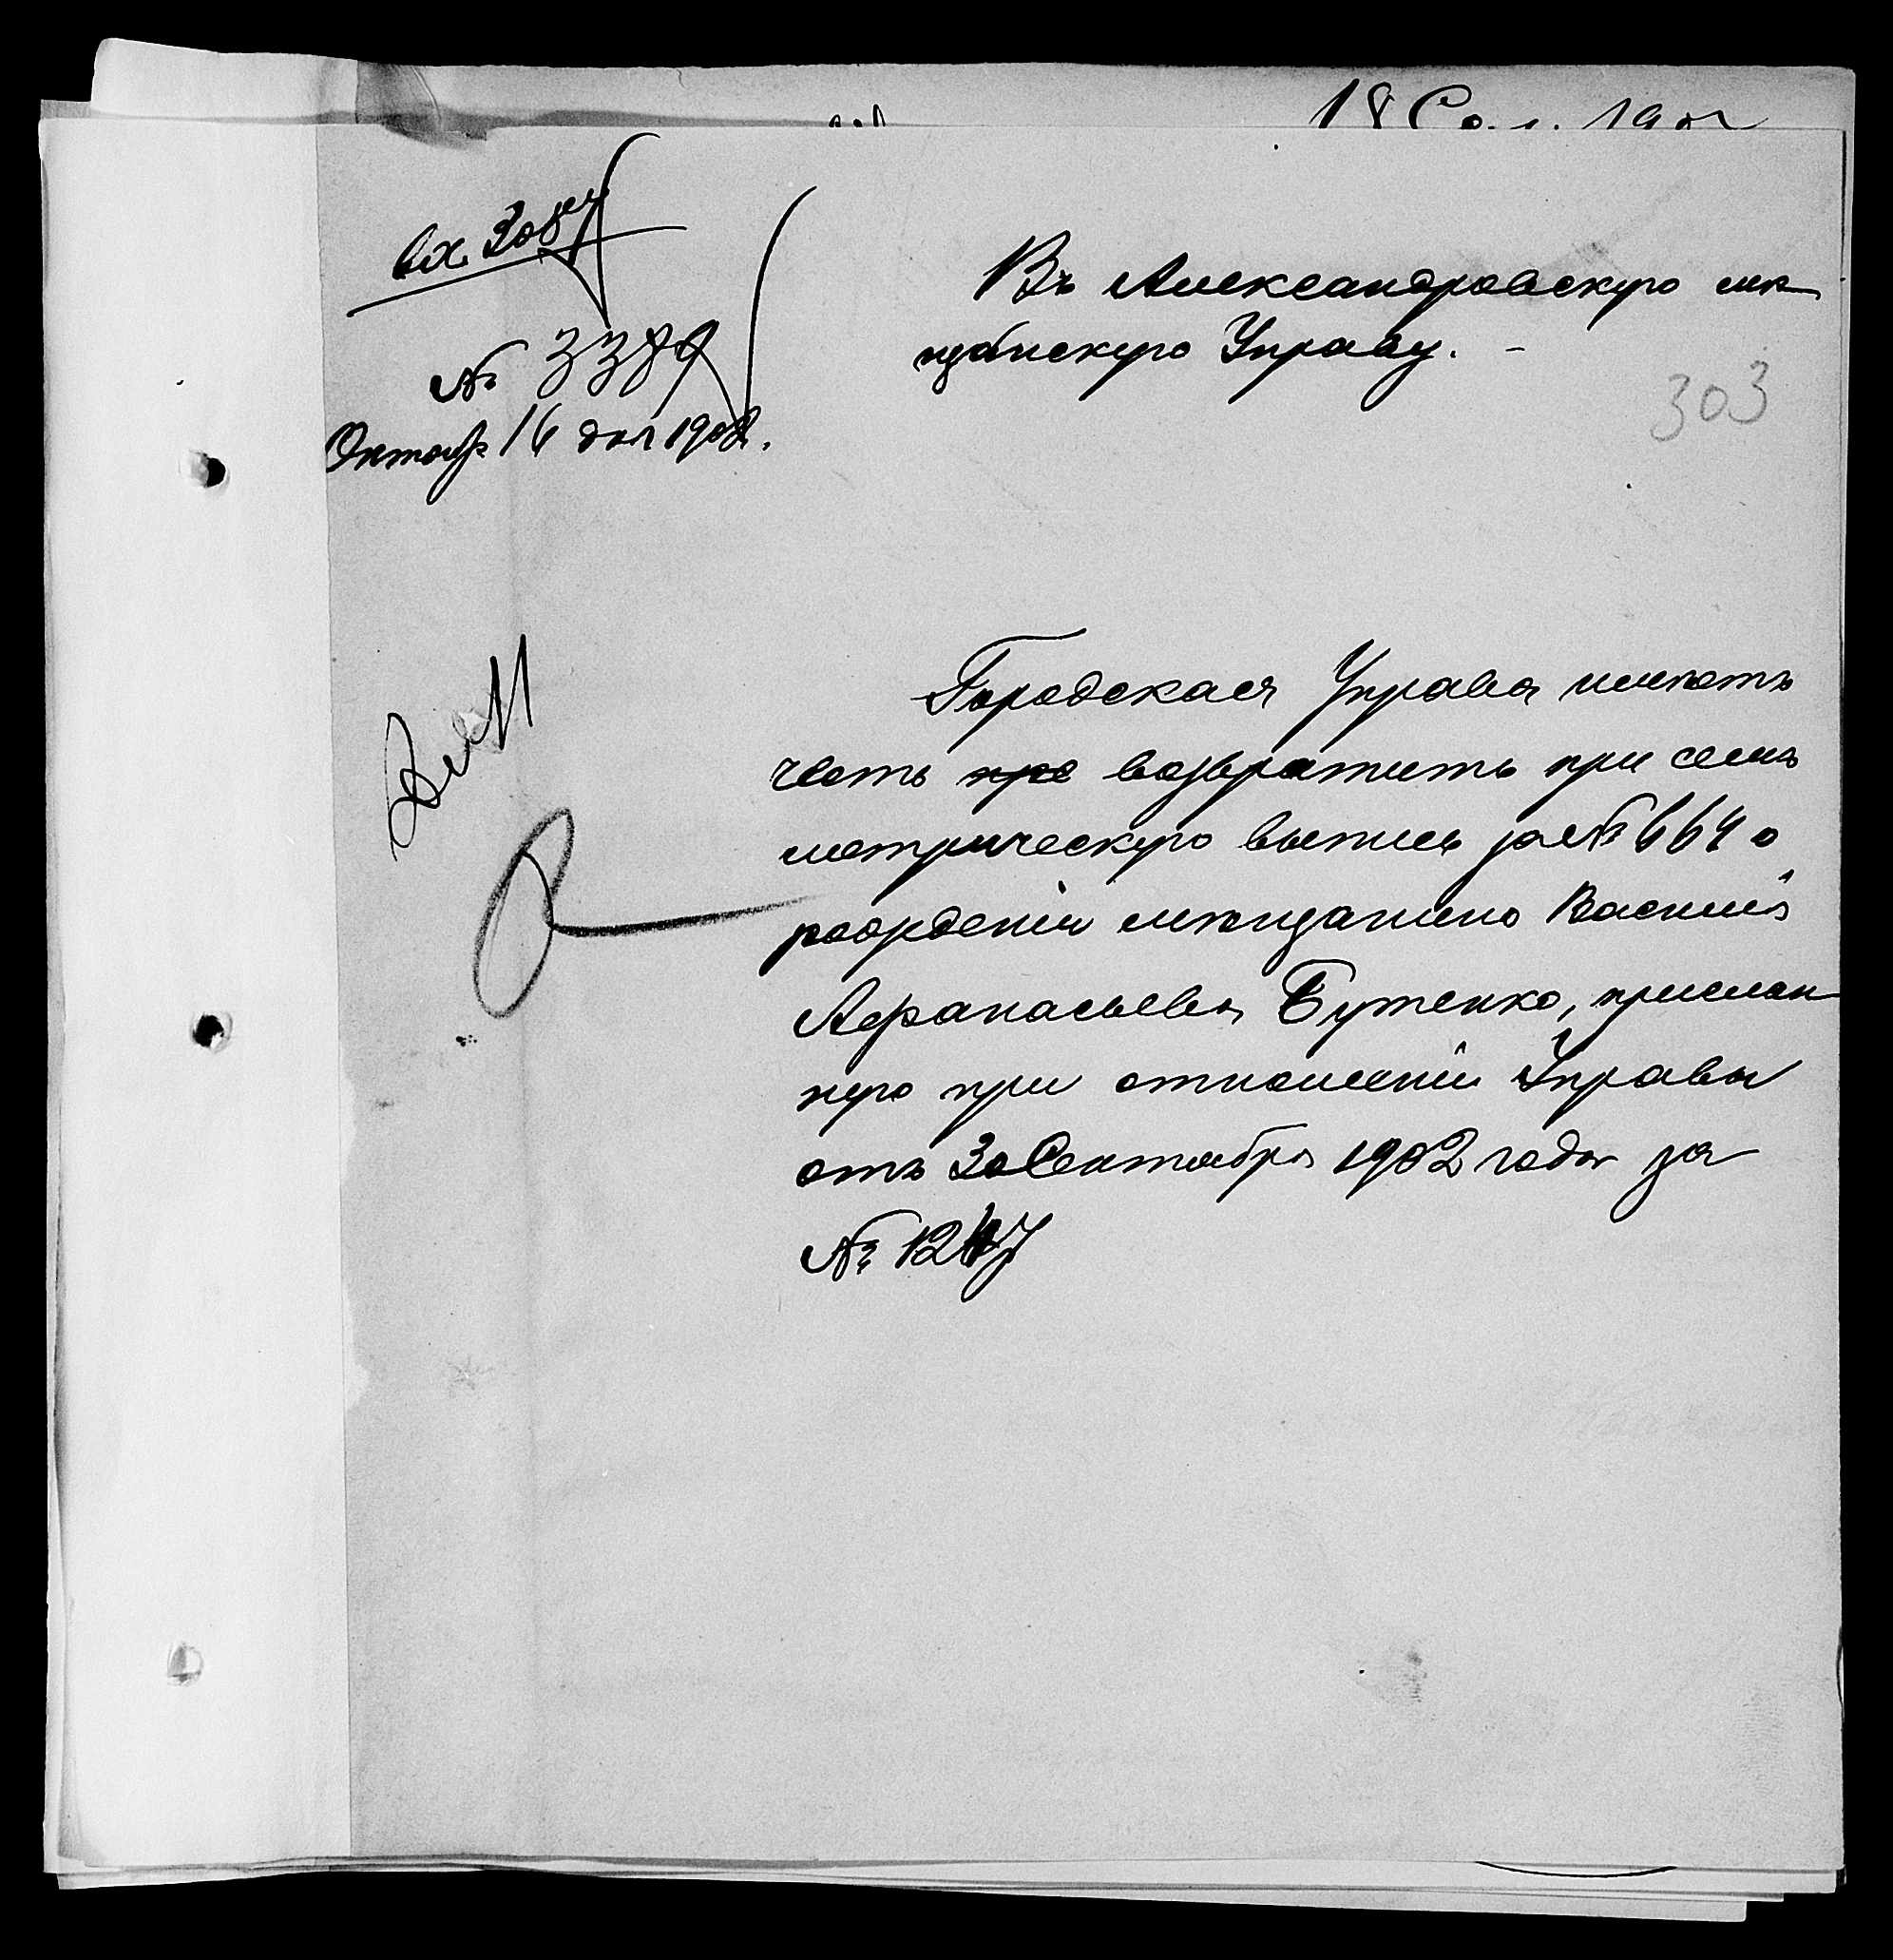 Вх 3087
№ 3389
Октяб. 16 дня 1902.
Въ Александровскую мѣ
щанскую Управу. –
303
Городская Управа имѣетъ
честь возвратить при семъ
метрическую выпись за № 664 о
рожденіи мѣщанина Василія
Афанасьева Бутенко, прислан
ную при отношеніи Управы
отъ 30 Сентября 1902 года за
№ 1247